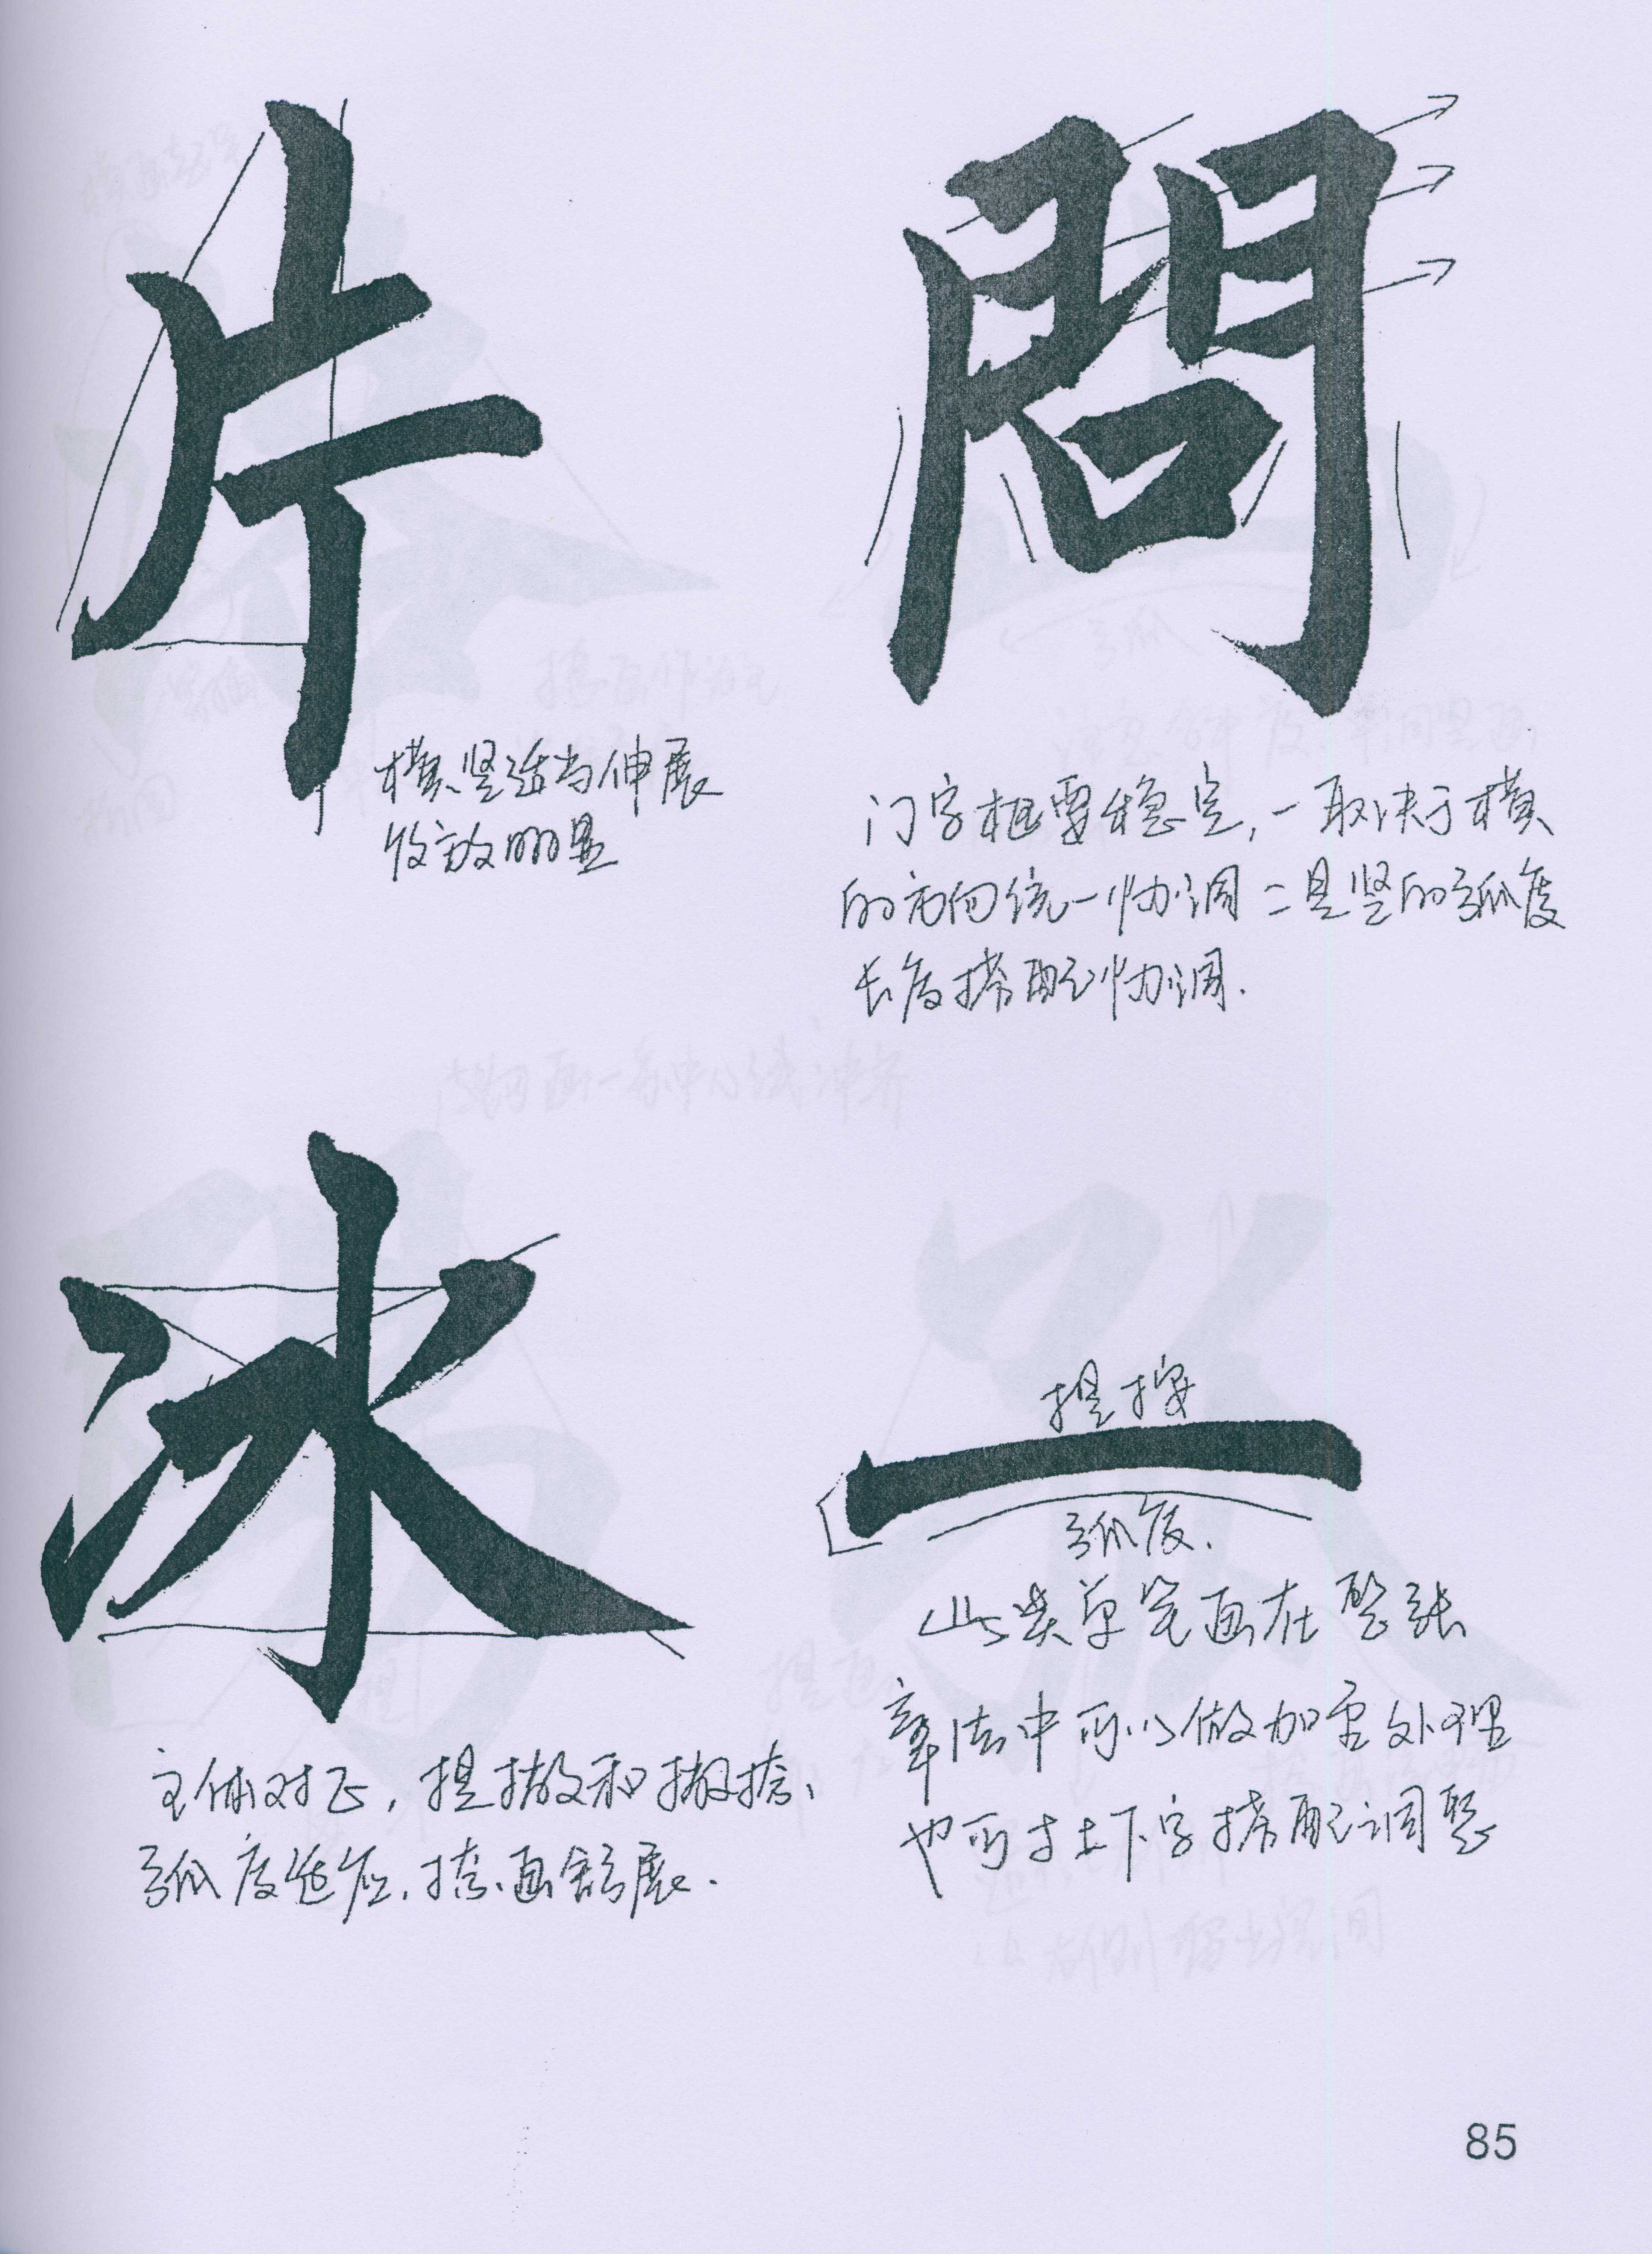 片
横、竖适当伸展
收放明显
問
门字框要稳定,一取决于横
的方向统一协调二是竖的弧度
长度搭配协调.
冰
主体对正,提撇和撇捺、
弧度适应.捺画舒展.
提按
一
弧度.
此类单笔画在整张
章法中可以做加重处理
也可寸上下字搭配调整
85